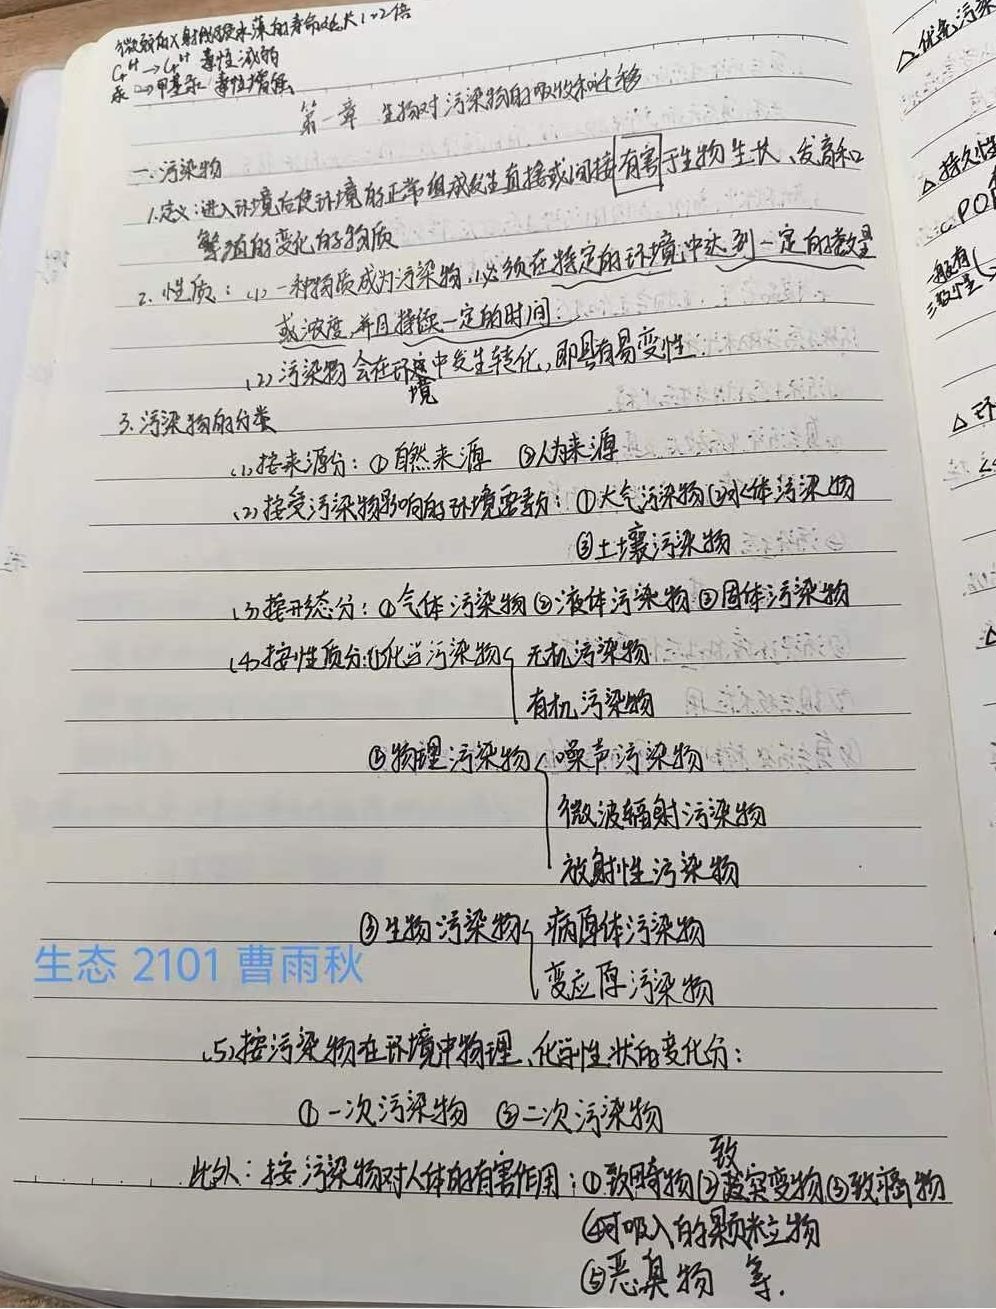 微弱的X射线照射水藻的寿命延大1~2倍
毒性减弱
汞→甲基汞 毒性增强
第一章 生物对污染物的吸收和迁移
一.污染物
1.定义:进入环境后使环境的正常组成发生直接或间接有害于生物生长、发育和
繁殖的变化的物质
2.性质:(1)一种物质成为污染物,必须在特定的环境中达到一定的数量
或浓度,并且持续一定的时间.
(2)污染物会在环境中发生转化,即具有易变性.
3.污染物的分类
(1)按来源分:①自然来源 ②人为来源
(2)按受污染物影响的环境要素分:①大气污染物②水体污染物
③土壤污染物
(3)按形态分:①气体污染物②液体污染物③固体污染物
(4)按性质分:①化学污染物 无机污染物
有机污染物
②物理污染物 噪声污染物
微波辐射污染物
放射性污染物
③生物污染物 病原体污染物
变应原污染物
生态 2101 曹雨秋
(5)按污染物在环境中物理、化学性状的变化分:
①一次污染物 ②二次污染物
此外:按污染物对人体的有害作用:①致畸物②致突变物③致癌物
④可吸入的颗粒物
⑤恶臭物 等.
△优先污染
△持久性
POP
一般有
三致性
△环